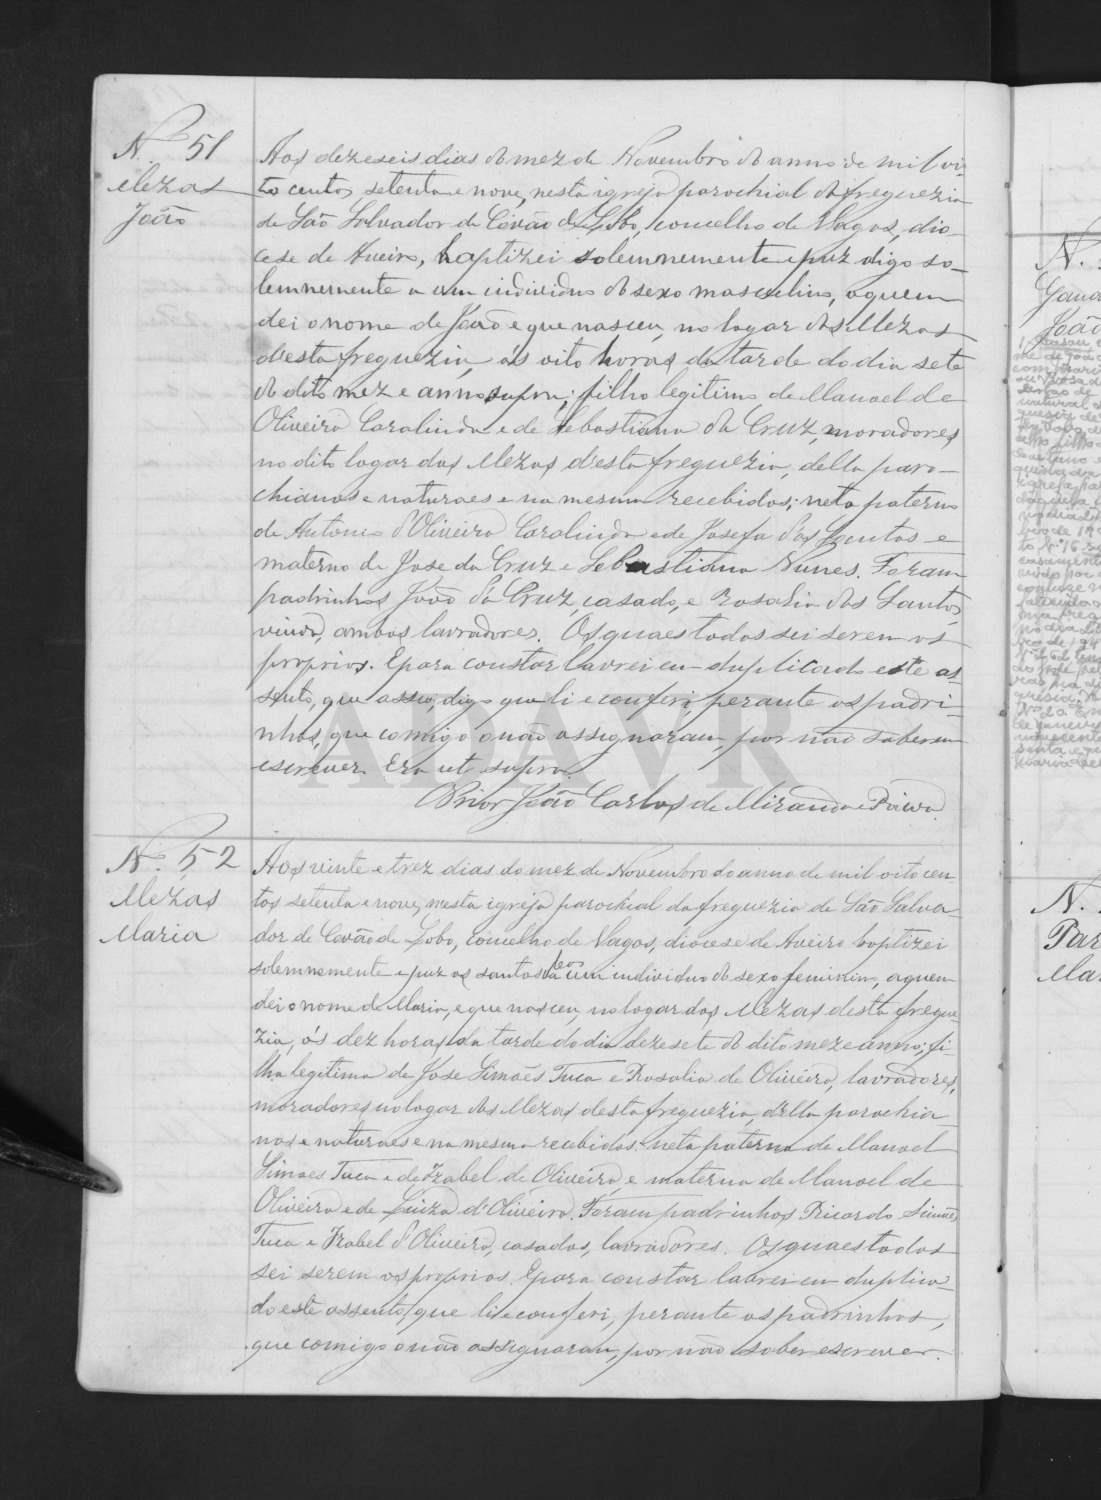 N.º 51
Mezas
João
Aos dezeseis dias do mez de Novembro do anno de mil oi-
to centos setenta e nove, nesta igreja parochial da freguezia
de São Salvador de Covão do Lobo, concelho de Vagos, dio-
cese de Aveiro, baptizei solemnemente e puz digo so-
lemnemente a um individuo do sexo masculino, a quem
dei o nome de João e que nasceu, no logar das Mezas
d'esta freguezia, ás oito horas da tarde do dia sete
do dito mez e anno supra; filho legitimo de Manoel de
Oliveira Carolindo e de Sebastiana da Cruz, moradores
no dito logar das Mezas d'esta freguezia, della paro-
chianos e naturaes e na mesma recebidos; neto paterno
de Antonio d'Oliveira Carolindo e de Josefa dos Santos e
materno de Jose da Cruz e Sebastiana Nunes. Foram
padrinhos João da Cruz, casado, e Rosalia dos Santos,
viuva, ambos lavradores. Os quaes todos sei serem os
proprios. E para constar lavrei em duplicado este as-
sento, que asso, digo que li e conferi, perante os padri-
nhos, que comigo o não assignaram, por não saberem
escrever. Era ut supra.
O Prior João Carlos de Miranda e Paiva.
N.º 52
Mezas
Maria
Aos vinte e trez dias do mez de Novembro do anno de mil oito cen-
tos setenta e nove, nesta igreja parochial da freguezia de São Salva-
dor de Covão de Lobo, concelho de Vagos, diocese de Aveiro baptizei
solemnemente e puz os santos oleos a um individuo do sexo feminino, a quem
dei o nome de Maria, e que nasceu, no logar das Mezas desta fregue-
zia, ás dez horas da tarde do dia dezesete do dito mez e anno; fi-
lha legitima de Jose Simões Tuca e Rosalia de Oliveira, lavradores,
moradores no logar das Mezas desta freguezia, d'ella parochia-
nos e naturaes e na mesma recebidos: neta paterna de Manoel
Simoes Tuca e de Izabel de Oliveira, e materna de Manoel de
Oliveira e de Luiza d'Oliveira. Foram padrinhos Ricardo Simões
Tuca e Izabel d'Oliveira, casados, lavradores. Os quaes todos
sei serem os proprios. E para constar lavrei em duplica-
do este assento, que li e conferi, perante os padrinhos,
que comigo o não assignaram, por não saber escrever.
ADAVR
N.
João
N.
Par
Ma